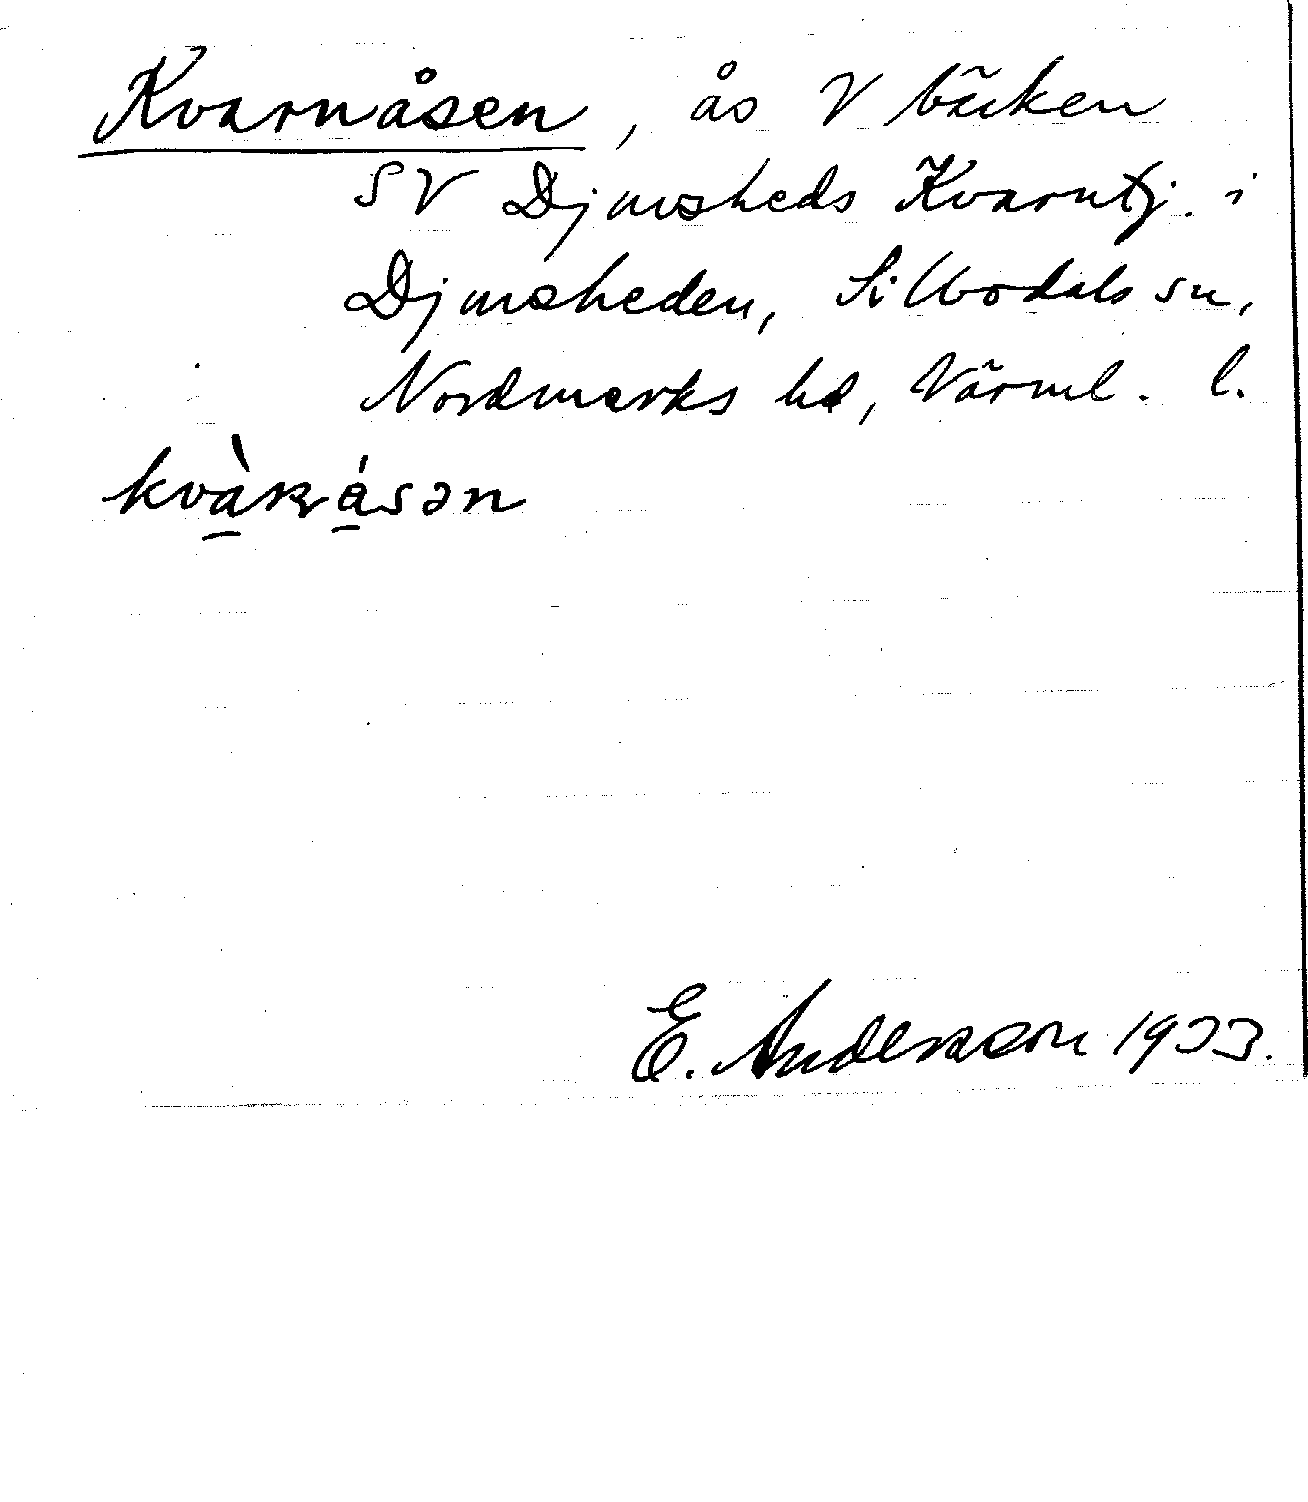 Kvarnåsen, ås V bäcken
SV Djursheds Kvarntj. i
Djursheden, Silbodals sn,
Nordmarks hd, Värml. l.
E. Andersson 1933.